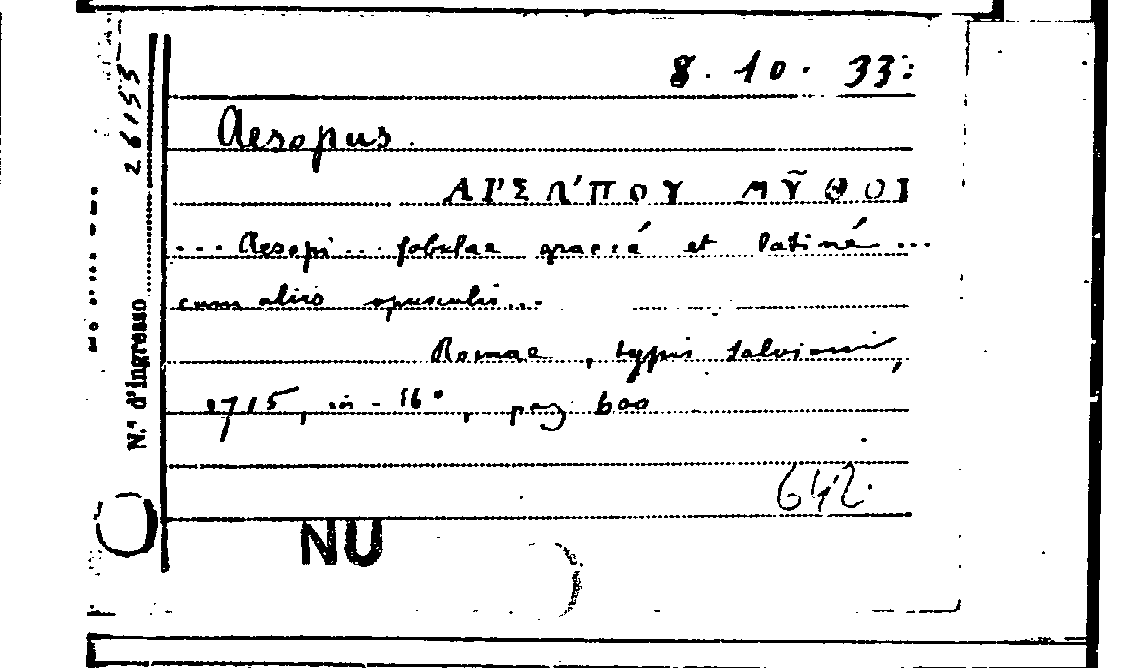 8. 10. 33.
Aesopus.
ΑΙ'ΣΩ'ΠΟΥ ΜΥ͂ΘΟΙ
... Aesopi ... fabulae graecé et latiné ...
cum aliis opusculis...
Romae, typis Salvioni,
1715, in-16°, pag 600
642.
NU
N.° d'ingresso 26153